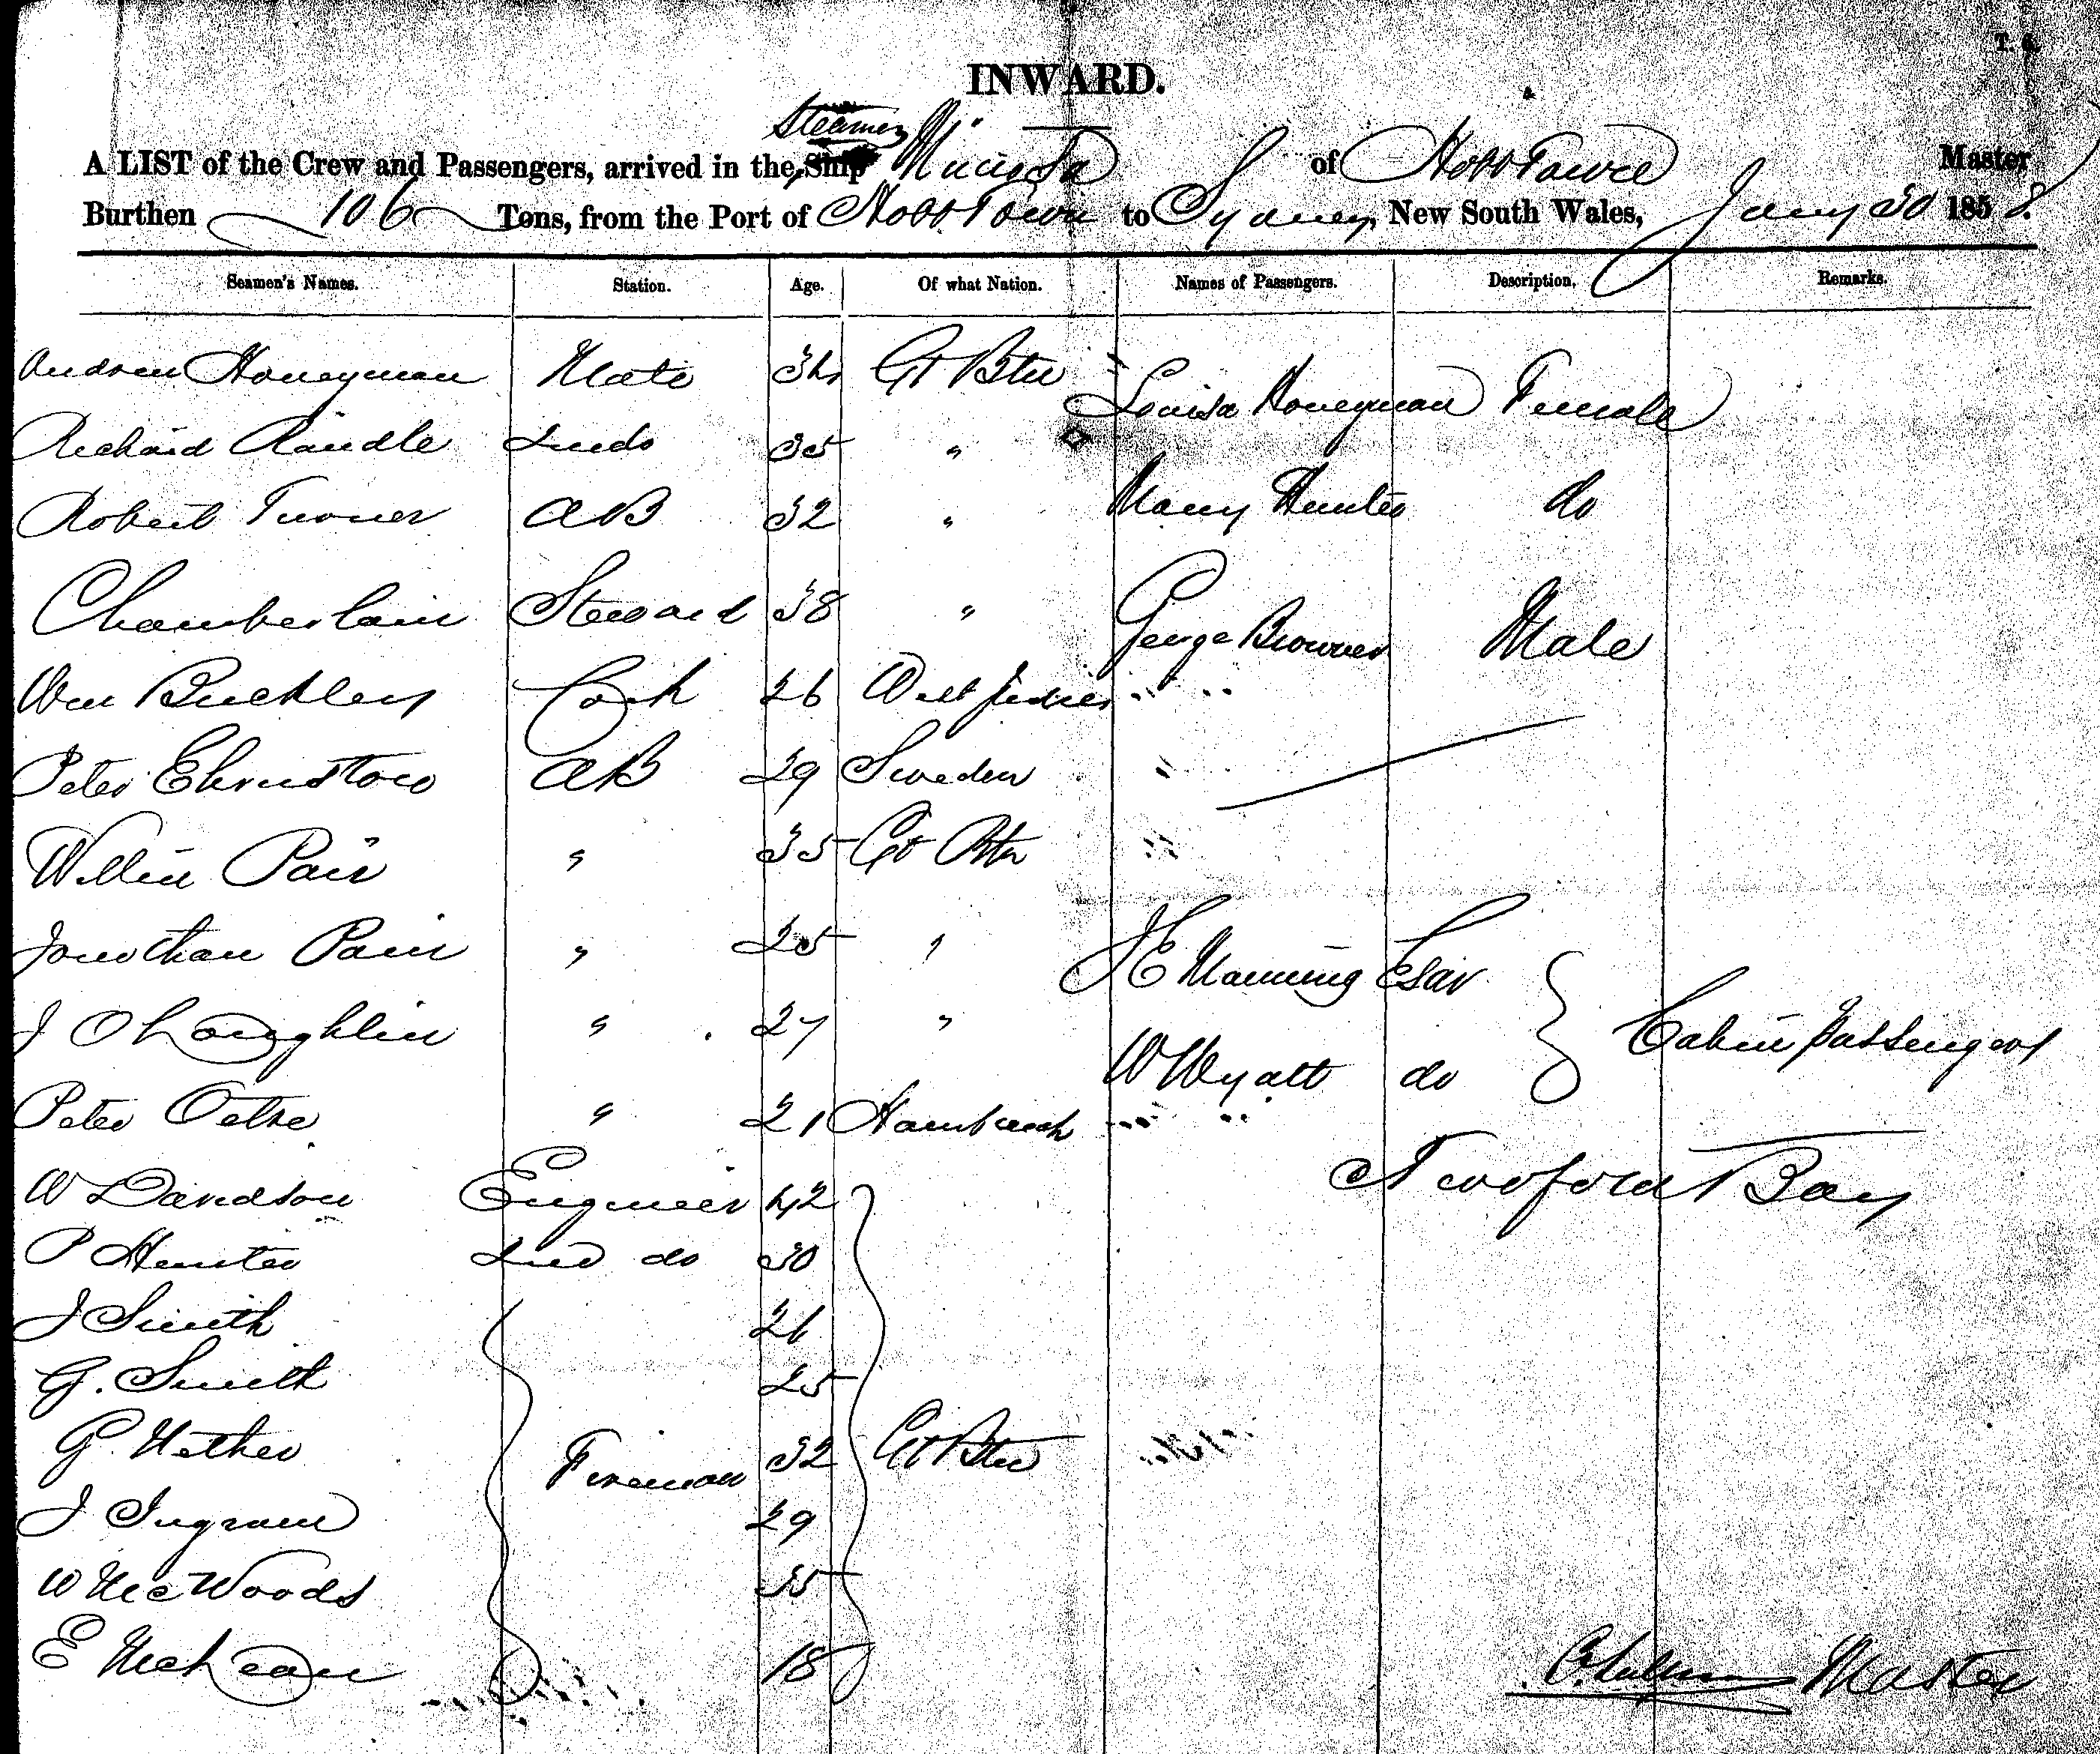 INWARD.
Steamer
A LIST of the Crew and Passengers, arrived in the Ship of Hobt Town Master
Burthen 106 Tons, from the Port of Hobt Town to Sydney, New South Wales, Jany 30 1858.
Seamen's Names. Station. Age. Of what Nation. Names of Passengers. Description. Remarks.
Andrew Honeyman Mate 34 Gt Btn Louisa Honeyman Female
Richard Randle 2nd do 35 " 
Robert Turner AB 32 " Mary Hunter do
Chamberlain Steward 38 " George Browner Male
Wm Buckley Cook 26 West Indies
Peter AB 29 Sweden
Willm Pair " 35 Gt Btn
Jonathan Pair " 25 " J E Manning Esqr
J O Loughlin " 27 " Cabin Passengers
W Wyatt do
Peter " 21
Twofold Bay
W Davidson Engineer 42
P Hunter 2nd do 30
J Smith 26
G. Smith 25
G. Fireman 32 Gt Btn
J Ingram 29
W McWoods 35
E McLean 18 Master